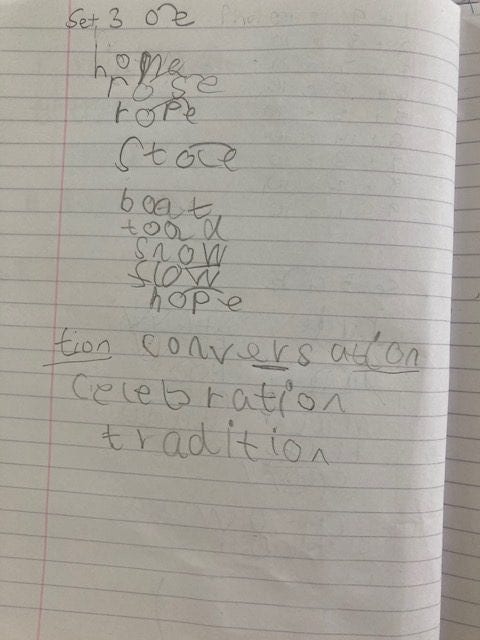 Set 3 o-e
home
rose
rope
stoce
boat
toad
snow
slow
hope
tion conversation
celebration
tradition